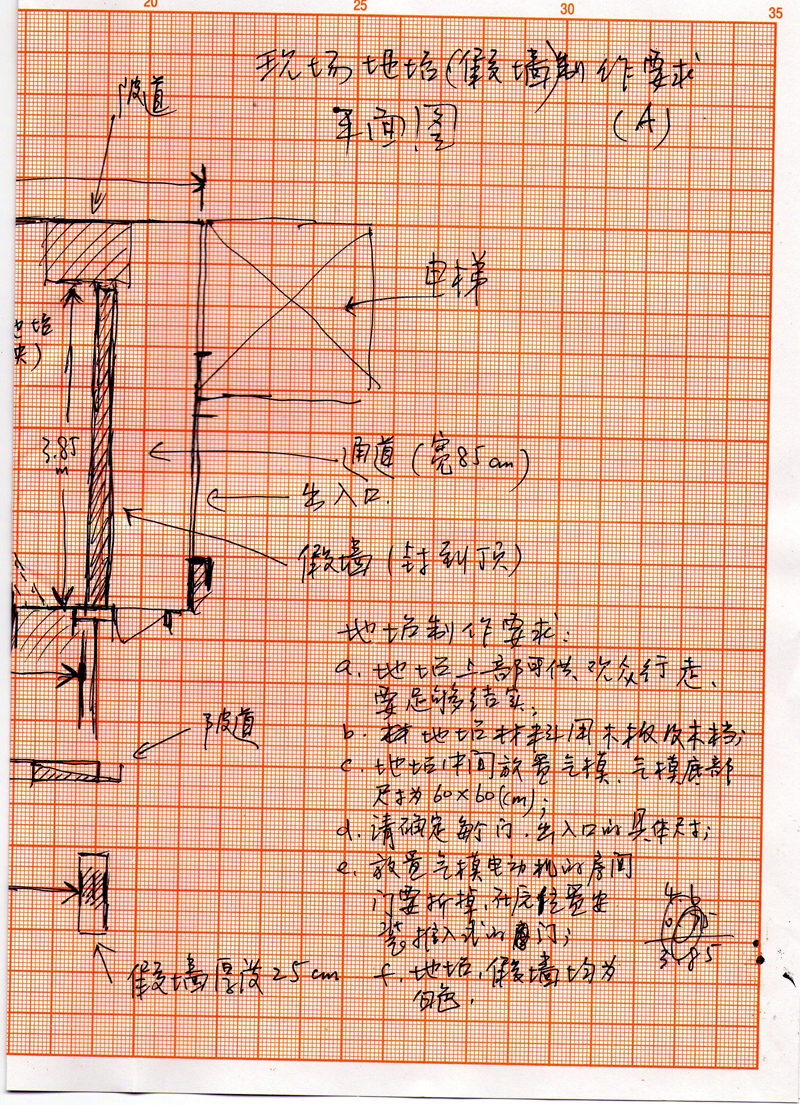 20
25
30
35
现场地台(假墙)制作要求
平面图
(A)
陂道
电梯
地台
央)
3.85
m
通道(宽85cm)
出入口.
假墙(封到顶)
地台制作要求:
a. 地台上部可供观众行走、
要足够结实;
b. 地台材料用木板及木档;
陂道
c. 地台中间放置气模、气模底部
尺寸为60×60(cm);
d. 请确定每个门、出入口的具体尺寸;
e. 放置气模电动机的房间
门要拆掉,在原位置安
装推入式的门;
假墙厚度25cm
f. 地台、假墙均为
白色.
3.85